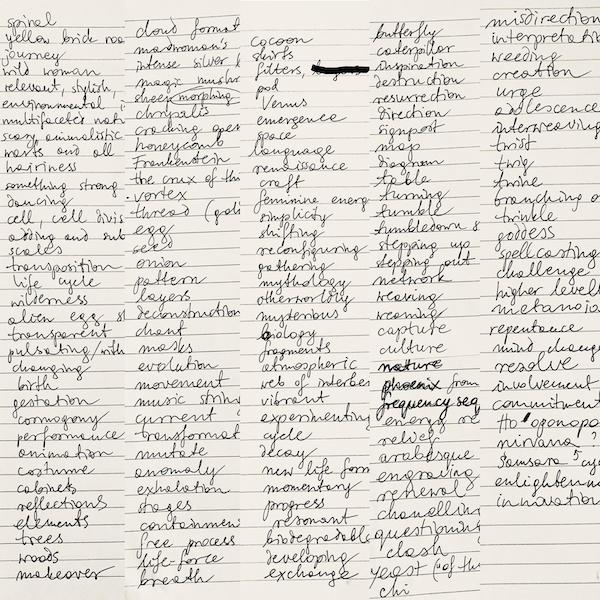 spinal
yellow brick roa
journey
wild woman
relevant, stylish,
environmental i
multifaceted natu
scary animalistic
warts and all
hairiness
something strong
dancing
cell, cell divis
adding and sub
scales
transposition
life cycle
wilderness
alien egg sh
transparent
pulsating / with
changing
birth
gestation
cosmogony
performance
animation
costume
cabinets
reflections
elements
trees
woods
makeover
cloud format
madwoman's
intense silver l
magic mushr
sheer morphing
chrysalis
cracking open
honeycomb
Frankenstein
the crux of the
vortex
thread (gold
egg
seed
onion
pattern
layers
deconstruction
chant
masks
evolution
movement
music string
current
transformat
mutate
anomaly
exhalation
stages
containmen
free process
life-force
breath
cocoon
shifts
filters,
pod
Venus
emergence
space
language
renaissance
craft
feminine energ
simplicity
shifting
reconfiguring
gathering
mythology
otherworldly
mysterious
biology
fragments
atmospheric
web of interbei
vibrant
experimenting
cycle
decay
new life form
momentary
progress
resonant
biodegradable
developing
exchange
butterfly
caterpillar
inspiration
destruction
resurrection
direction
signpost
map
diagram
table
turning
tumble
tumbledown s
stepping up
stepping out
network
weaving
weaning
capture
culture
nature
phoenix from
frequency seq
energy re
relief
arabesque
engraving
renewal
chanelling
questioning
clash
yeast (of the
chi
misdirection
interpretati
weeding
creation
urge
adolescence
interweaving
twist
twig
twine
branching o
trinkle
goddess
spellcasting
challenge
higher levels
metanoia
repentance
mind change
resolve
involvement
commitment
Ho'oponopo
nirvana ?
Samsara cyc
enlightenme
innovation